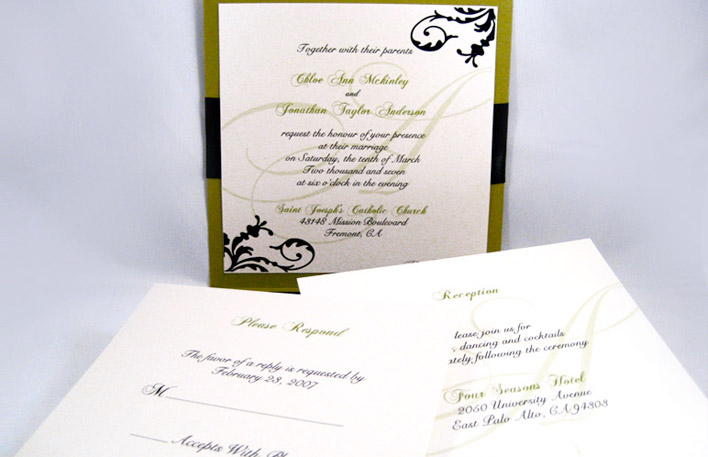 Together with their parents
Chloe Ann Mckinley
and
Jonathan Taylor Anderson
request the honour of your presence
at their marriage
on Saturday, the tenth of March
Two thousand and seven
at six o'clock in the evening
Saint Joesph's Catholic Church
43148 Mission Boulevard
Fremont, CA
Please Respond
The favor of a reply is requested by
February 23, 2007
M
Accepts With
Reception
please join us for
dancing and cocktails
following the ceremony
Four Seasons Hotel
2050 University Avenue
East Palo Alto, CA 94303